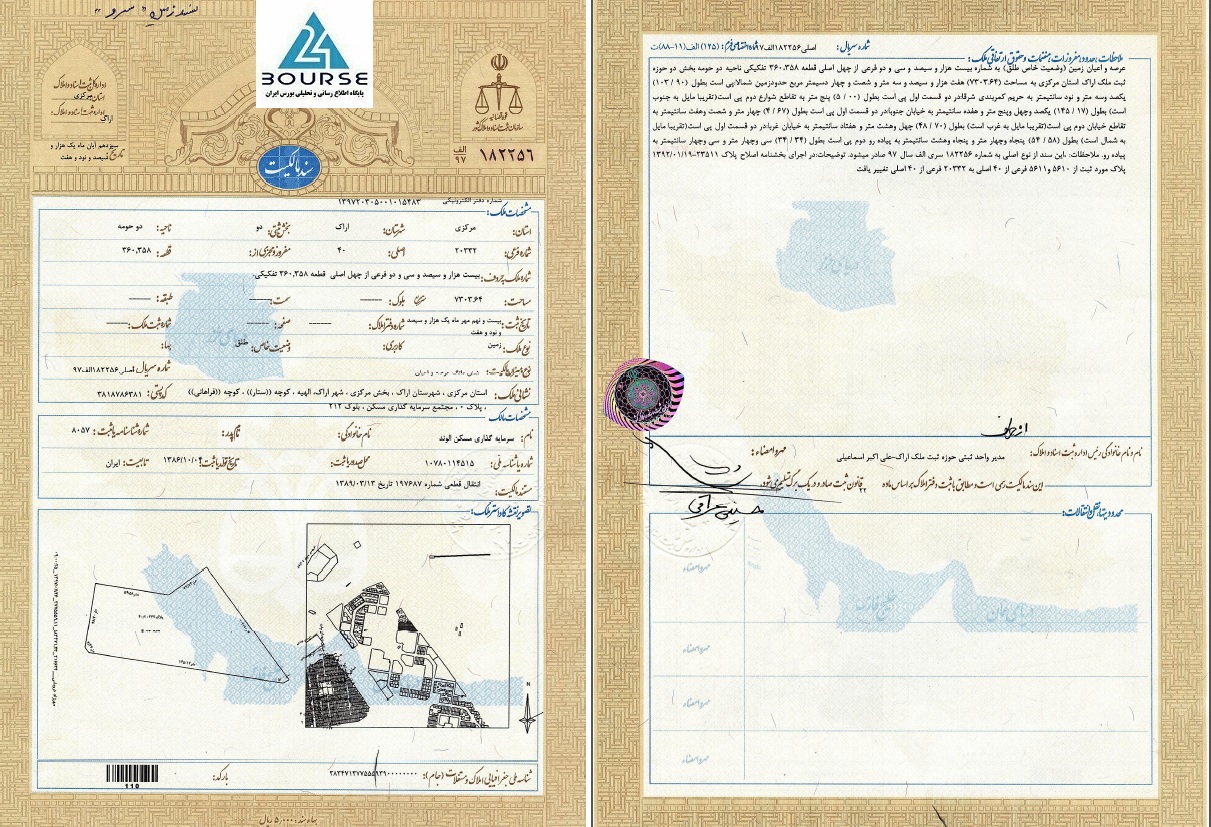 سند زمین "سرو"
24
BOURSE
پایگاه اطلاع رسانی و تحلیلی بورس ایران
اداره کل ثبت اسناد و املاک
استان مرکزی
اداره ثبت اسناد و املاک
اراک
سیزدهم آبان ماه یک هزار و
تاریخ سیصد و نود و هفت
قوه قضائیه
سازمان ثبت اسناد و املاک کشور
الف ۹۷ ۱۸۲۲۵۶
سند مالکیت
شماره دفتر الکترونیکی ۱۳۹۷۲۰۳۰۵۰۰۱۰۱۵۴۸۳
مشخصات ملک:
استان: مرکزی شهرستان: اراک بخش ثبتی: دو ناحیه: دو حومه
شماره فرعی: ۲۰۳۳۲ اصلی: ۴۰ مفروز و مجزی از: قطعه: ۳۶۰,۳۵۸
شماره ملک به حروف: بیست هزار و سیصد و سی و دو فرعی از چهل اصلی قطعه ۳۶۰,۳۵۸ تفکیکی.
مساحت: ۷۳۰۳.۶۴ مترمربع بلوک: ------ سمت: ------ طبقه: ------
تاریخ ثبت: بیست و نهم مهر ماه یک هزار و سیصد و نود و هفت شماره دفتر املاک: ------ صفحه: ------ شماره ثبت ملک: ------
نوع ملک: زمین کاربری: وضعیت خاص: طلق بها:
شماره سریال: اصلی۱۸۲۲۵۶الف۹۷
نشانی ملک: استان مرکزی ، شهرستان اراک ، بخش مرکزی ، شهر اراک، الهیه ، کوچه ((ستار)) ، کوچه ((فراهانی)) کدپستی: ۳۸۱۸۷۸۶۳۸۱
، پلاک ۰ ، مجتمع سرمایه گذاری مسکن ، بلوک ۲۱۲
مشخصات مالک:
نام: سرمایه گذاری مسکن الوند نام خانوادگی: نام پدر: شماره شناسنامه یا ثبت: ۸۰۵۷
شماره یا شناسه ملی: ۱۰۷۸۰۱۱۴۵۱۵ محل صدور یا ثبت: تاریخ تولد یا ثبت: ۱۳۸۶/۱۰/۰۴ تابعیت: ایران
مستند مالکیت: انتقال قطعی شماره ۱۹۷۶۸۷ تاریخ ۱۳۸۹/۰۳/۱۳
تصویر نقشه کاداستر ملک:
N
دریای خزر
خلیج فارس
شناسه ملی جغرافیایی املاک و مستغلات (جام):
بارکد:
110
بهاء سند: ۵۰۰۰ ریال
شماره سریال: اصلی۱۸۲۲۵۶الف۹۷ شناسه اختصاصی فرم: (۱۲۵) الف(۱۱-۸۸)ت
ملاحظات، حدود، مفروزات، منضمات و حقوق ارتفاقی ملک:
عرصه و اعیان زمین (وضعیت خاص طلق) به شماره بیست هزار و سیصد و سی و دو فرعی از چهل اصلی قطعه ۳۶۰,۳۵۸ تفکیکی ناحیه دو حومه بخش دو حوزه
ثبت ملک اراک استان مرکزی به مساحت (۷۳۰۳.۶۴) هفت هزار و سیصد و سه متر و شصت و چهار دسیمتر مربع حدودزمین شمالا:پی است بطول (۹۰ / ۱۰۳)
یکصد وسه متر و نود سانتیمتر به حریم کمربندی شرقا:در دو قسمت اول پی است بطول (۰۰ / ۵) پنج متر به تقاطع شوارع دوم پی است(تقریبا مایل به جنوب
است) بطول (۱۷ / ۱۴۵) یکصد وچهل وپنج متر و هفده سانتیمتر به خیابان جنوبا:در دو قسمت اول پی است بطول (۶۷ / ۴) چهار متر و شصت وهفت سانتیمتر به
تقاطع خیابان دوم پی است(تقریبا مایل به غرب است) بطول (۷۰ / ۴۸) چهل وهشت متر و هفتاد سانتیمتر به خیابان غربا:در دو قسمت اول پی است(تقریبا مایل
به شمال است) بطول (۵۸ / ۵۴) پنجاه وچهار متر و پنجاه وهشت سانتیمتر به پیاده رو دوم پی است بطول (۳۴ / ۳۴) سی وچهار متر و سی وچهار سانتیمتر به
پیاده رو. ملاحظات: ،این سند از نوع اصلی به شماره ۱۸۲۲۵۶ سری الف سال ۹۷ صادر میشود. توضیحات:در اجرای بخشنامه اصلاح پلاک ۲۳۵۱۱-۱۳۹۲/۰۱/۱۹
پلاک مورد ثبت از ۵۶۱۰ و۵۶۱۱ فرعی از ۴۰ اصلی به ۲۰۳۳۲ فرعی از ۴۰ اصلی تغییر یافت
دریای خزر
نام و نام خانوادگی رئیس اداره ثبت اسناد و املاک: مدیر واحد ثبتی حوزه ثبت ملک اراک-علی اکبر اسماعیلی مهر و امضاء:
این سند مالکیت رسمی است و مطابق با ثبت و دفتر املاک بر اساس ماده ۲۲ قانون ثبت صادر و در یک برگ تسلیم می شود.
محدودیتها، نقل و انتقالات:
مهر و امضاء
خلیج فارس
دریای عمان
مهر و امضاء
مهر و امضاء
مهر و امضاء